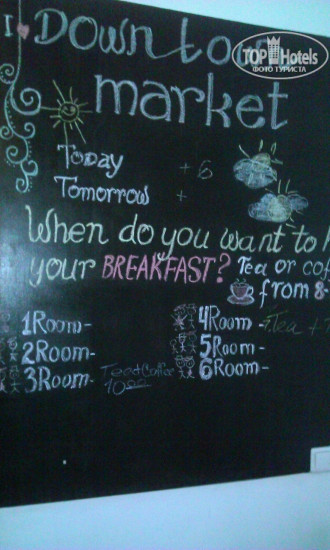 I Down tow
TOP Hotels
ФОТО ТУРИСТА
market
Today +6
Tomorrow +
When do you want to
your BREAKFAST? Tea or cof
from 8-
1Room- 4Room - Tea +
2Room- 5Room -
3Room- Tea+Coffee 6Room-
10:00